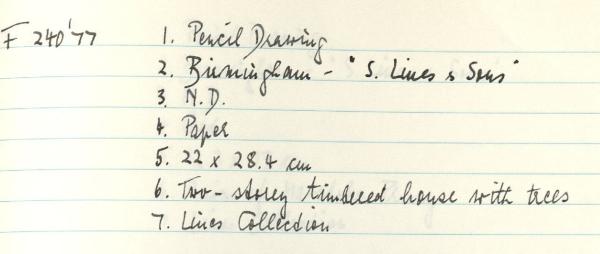 F 240'77 1. Pencil Drawing
2. Birmingham - "S. Lines & Sons"
3. N.D.
4. Paper
5. 22 x 28.4 cm
6. Two-storey timbered house with trees
7. Lines Collection